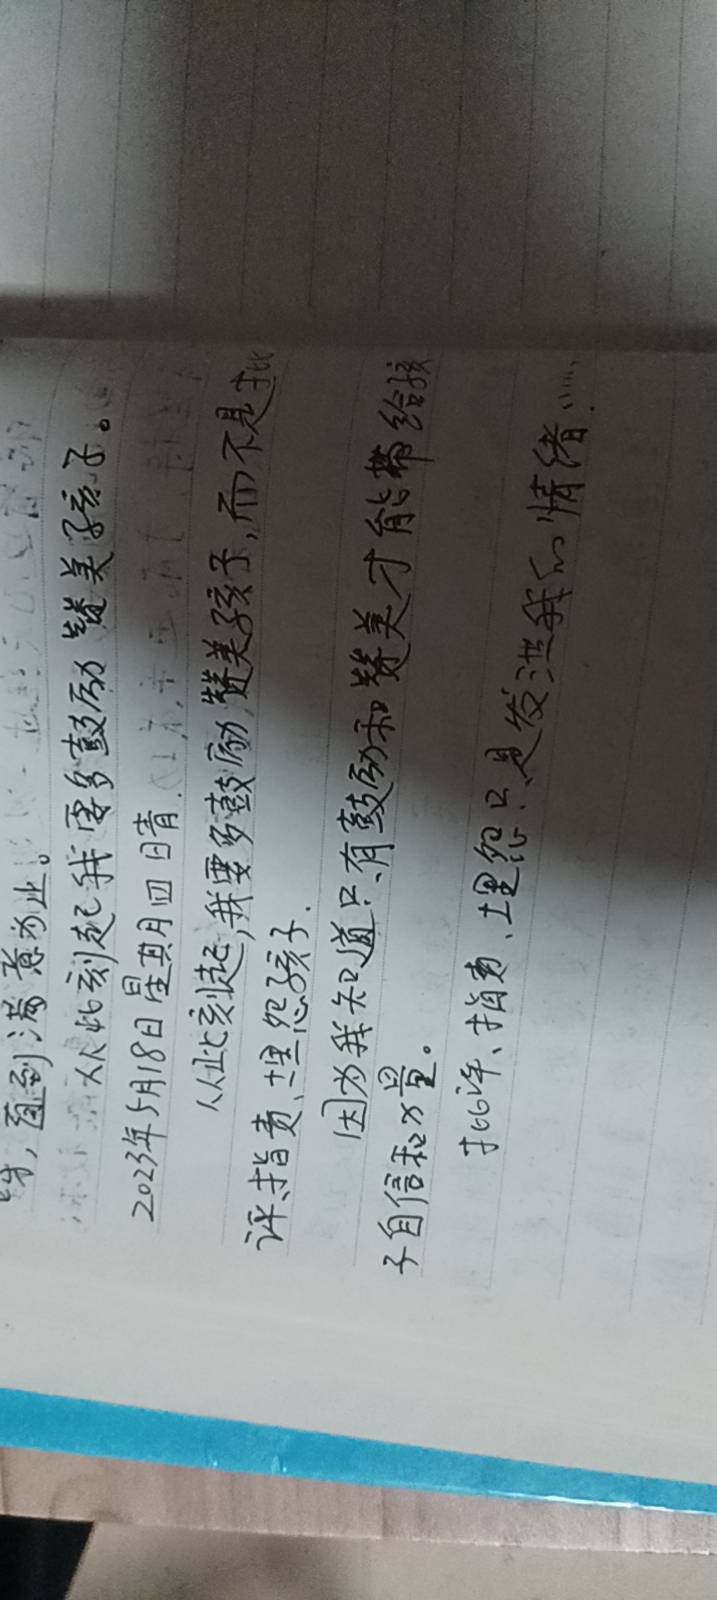 ，直到满意为止。
从此刻起我要多鼓励赞美孩子。
2023年5月18日星其月四日晴.
从此刻起,我要多鼓励,赞美孩子,而不是批
评、指责、埋怨孩子.
因为我知道只有鼓励和赞美才能带给孩
子自信和力量。
批评、指责、埋怨只是发泄我的情绪……